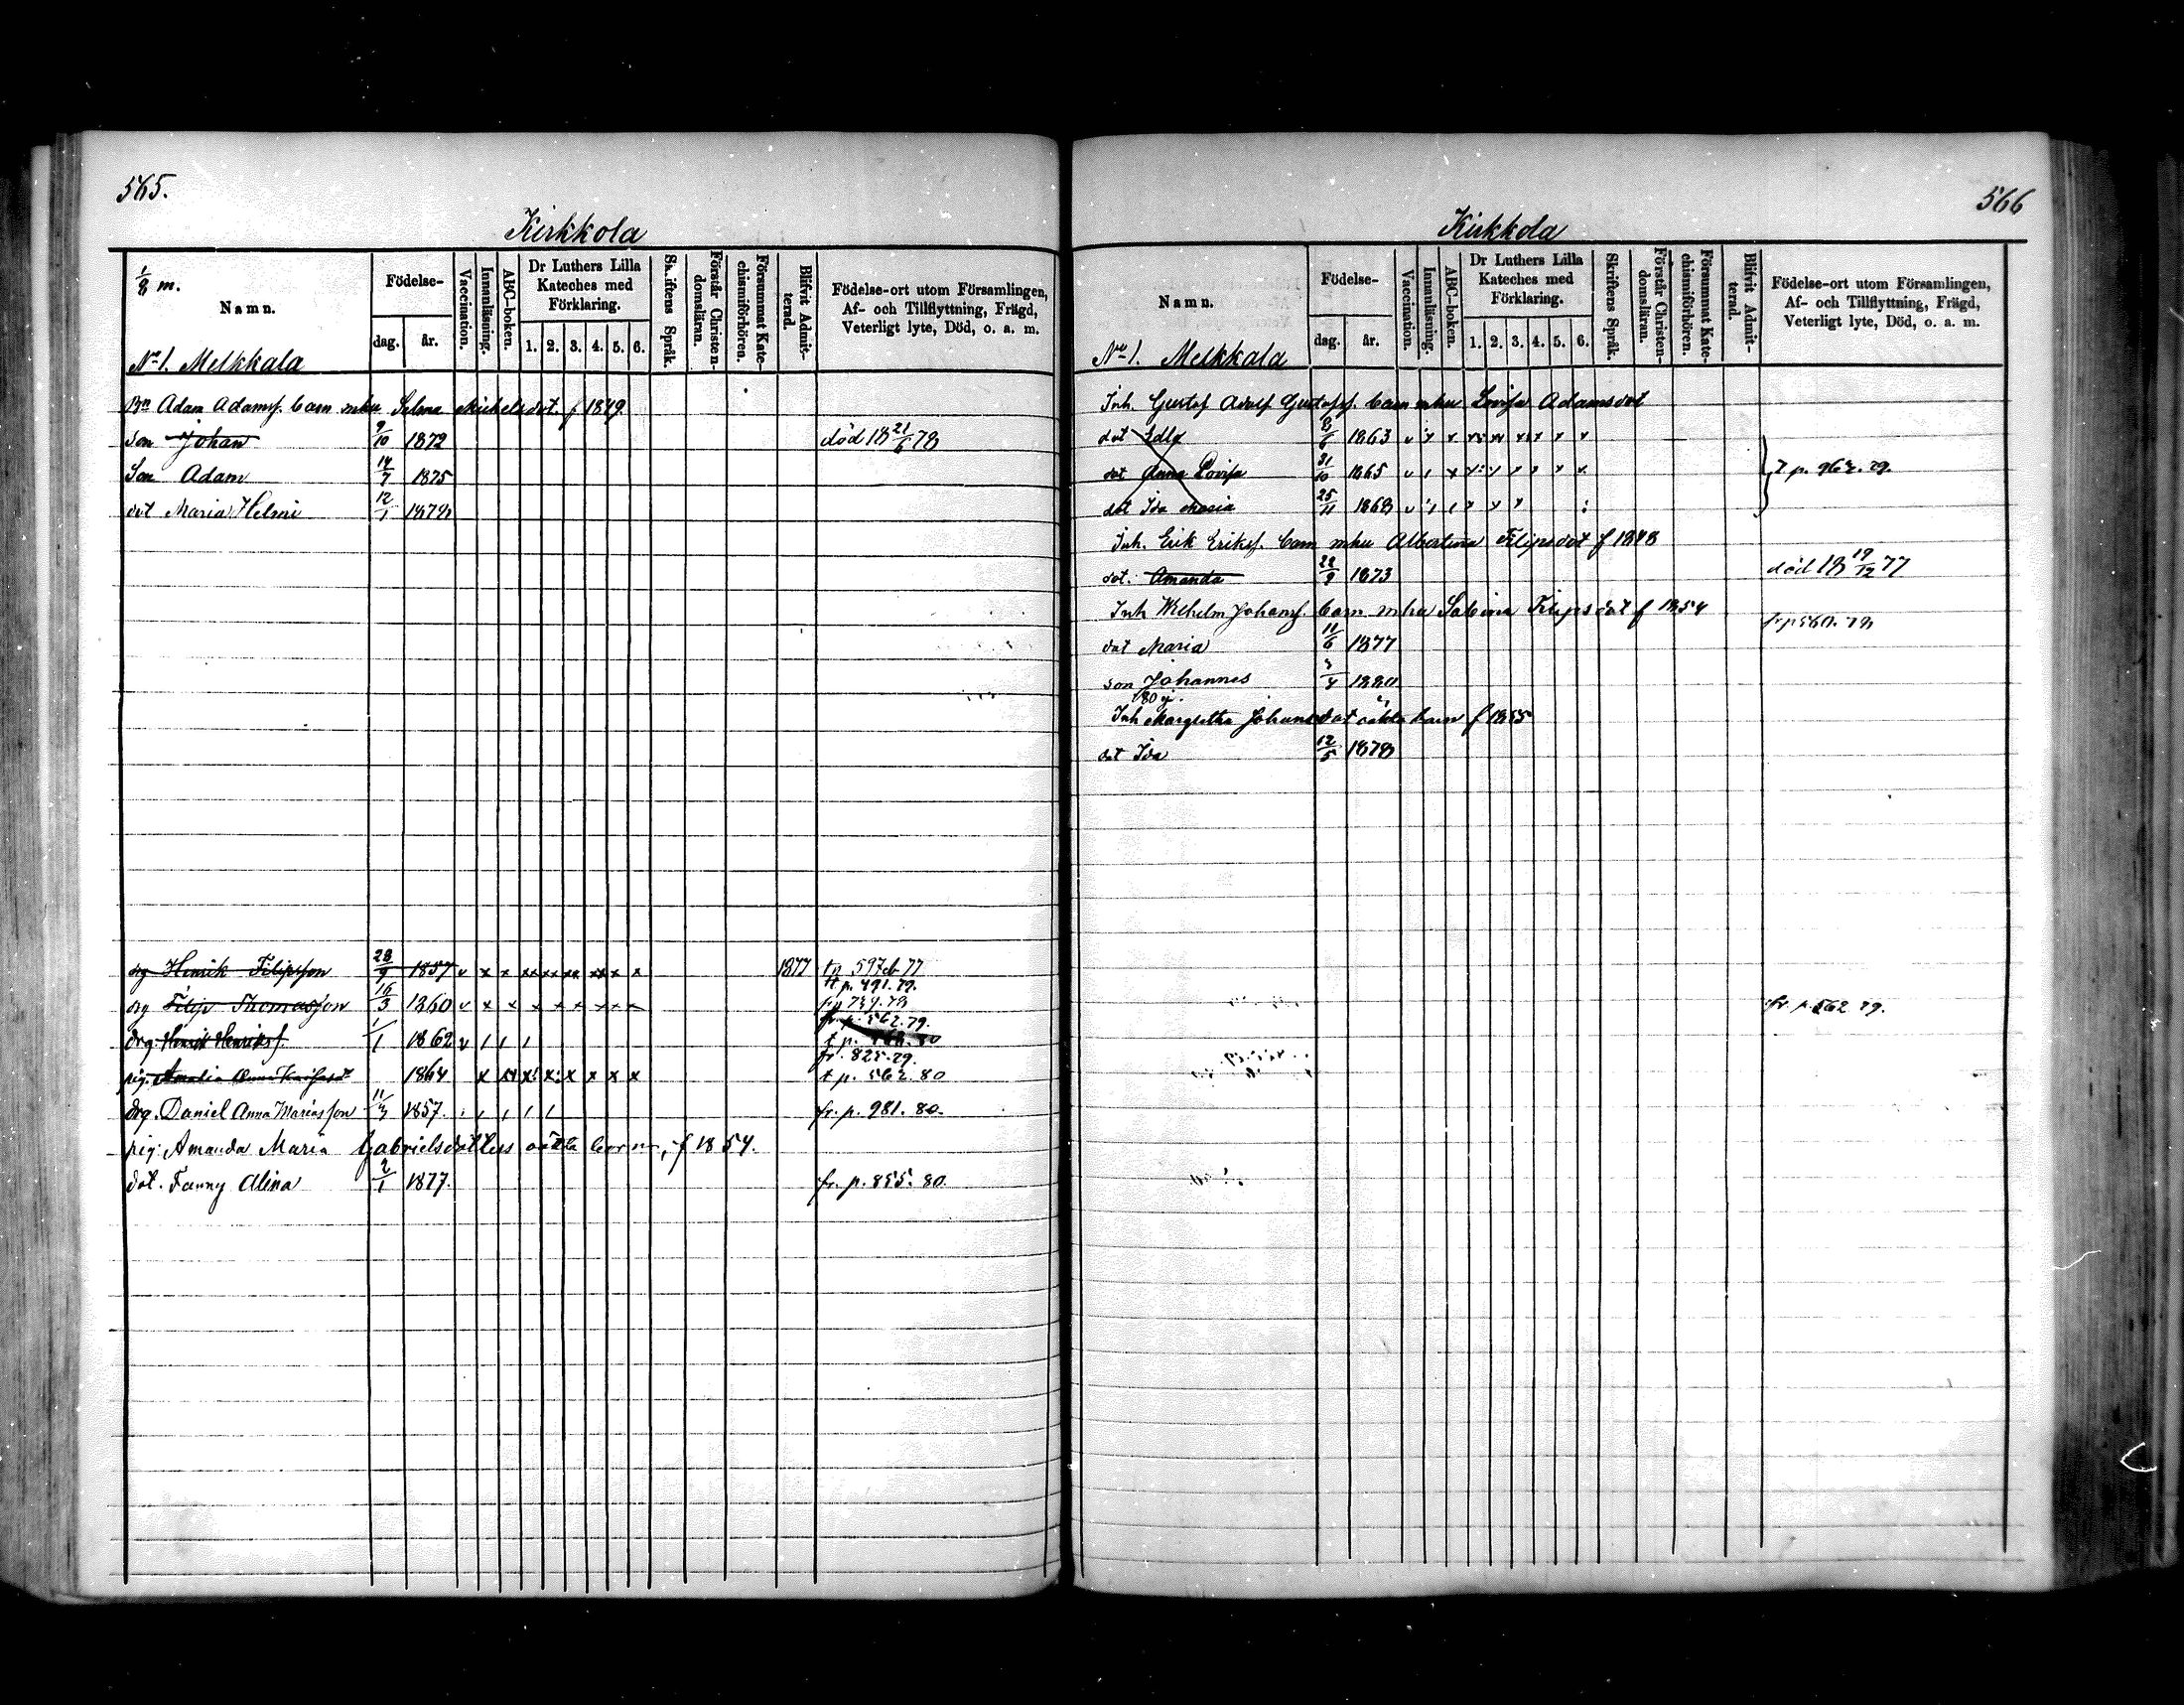 565.
Kirkkola
1/8 m.
Namn.
Födelse-
dag.
år.
Vaccination.
Innanläsning.
ABC-boken.
Dr Luthers Lilla Kateches med Förklaring.
1. 2. 3. 4. 5. 6.
Skriftens Språk.
Förstår Christendomsläran.
Försummat Katechismiförhören.
Blifvit Admitterad.
Födelse-ort utom Församlingen,
Af- och Tillflyttning, Frägd,
Veterligt lyte, Död, o. a. m.
No 1. Melkkala
Bn Adam Adamss. barn mhu Selma Michelsdot. f 1849
son Johan 9/10 1872 död 18 21/6 78
Son Adam 14/7 1875
dot Maria Helmi 12/1 1878
drg Henrik Filipsson 28/9 1857 v x x xx xx xx xx x x 1877 t p 597 77
tt p. 491. 79.
drg Filip Thomasson 16/3 1860 v x x x x x x x x fr p 734. 78
fr. p. 562. 79.
drg. Henrik Henrikss. 1/1 1862 v / / / t p. 80
fr. 825. 79.
pig. Amalia 1864 t p. 562. 80
drg. Daniel Anna Mariasson 11/3 1857. fr. p. 981. 80.
pig. Amanda Maria Gabrielsdotters oäkta barn, f 1854.
dot. Fanny Alina 2/1 1877. fr. p. 855. 80.
566
Kirkkola
Namn.
Födelse-
dag.
år.
Vaccination.
Innanläsning.
ABC-boken.
Dr Luthers Lilla Kateches med Förklaring.
1. 2. 3. 4. 5. 6.
Skriftens Språk.
Förstår Christendomsläran.
Försummat Katechismiförhören.
Blifvit Admitterad.
Födelse-ort utom Församlingen,
Af- och Tillflyttning, Frägd,
Veterligt lyte, Död, o. a. m.
No 1. Melkkala
Inh. Gustaf Adolf Gustafss. barn mhu Lovisa Adamsdot
dot Edla 8/6 1863
dot Anna Lovisa 31/10 1865 T. p. 962. 79.
dot Ida Maria 25/11 1868
Inh. Erik Erikss. barn mhu Albertina Filipsdot f 1848
dot. Amanda 22/9 1873 död 18 19/12 77
Inh Wilhelm Johanss. barn mhu Sabina Filipsdot f 1854
fr p 560. 78
dot Maria 11/6 1877
son Johannes 3/4 1880
Inh Margretha Johansdot oäkta barn f 1855
dot Ida 12/5 1878
fr. p. 562 79.